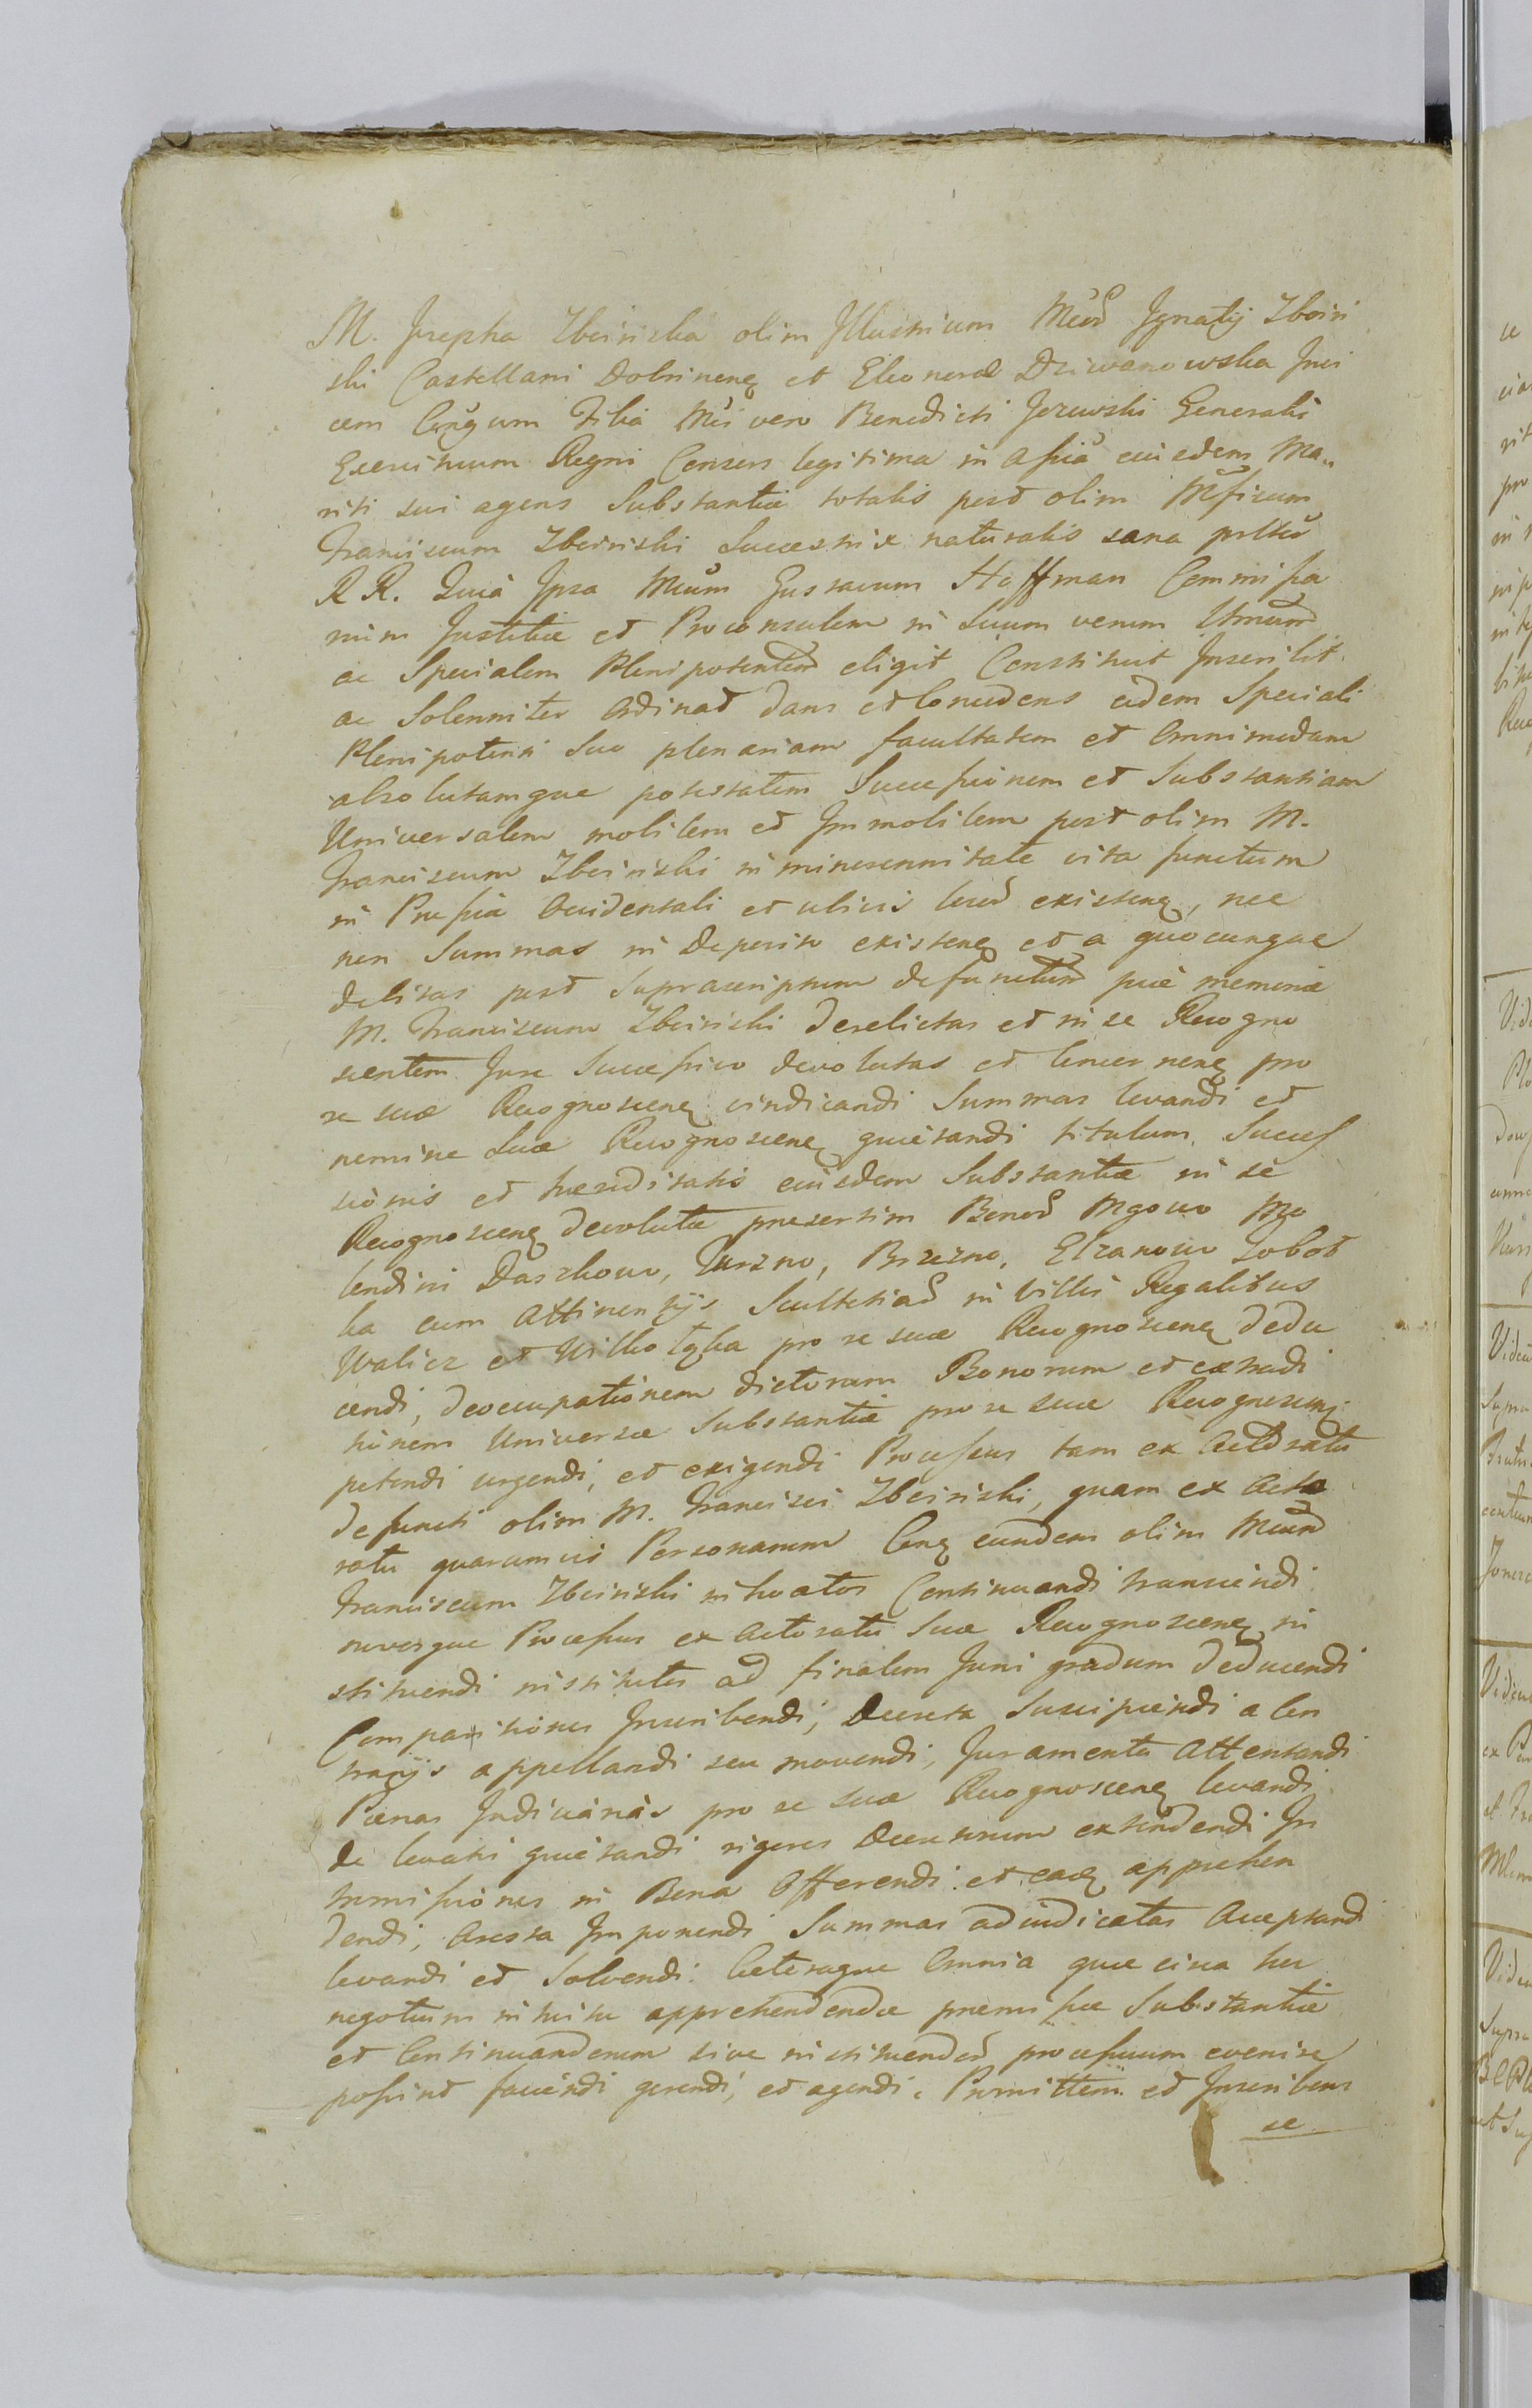 M. Josepha Zboinska olim Illustrium Mcor Ignatij Zboin
ski Castellani Dobrinenę et Eleonoræ Dziwanowska Invi
cem Conjgum Filia Mci vero Benedicti Jezewski Generalis
Exercituum Regni Consors legitima in assia eiusdem Ma„
riti sui agens Substantiæ totalis post olim Mficum
Franciscum Zboinski Successrix naturalis sana
R R. Quia Ipsa Mcum Gustavum Hoffman Commissa
rium Justitiæ et Proconsulem in Suum verum
ac Specialem Plenipotentem eligit Constituit Inscribit
ac Solenniter Ordinat dans et Concedens eidem Speciali
Plenipotenti Suo plenariam facultatem et Omnimodam
absolutamque potestatem Successionem et Substantiam
Universalem mobilem et Immobilem post olim M.
Franciscum Zboinski in minorennitate vita functum
in Prussia Occidentali et ubivis locor existenę, nec
non Summas in Deposito existenę et a quocunque
debitas post Suprascriptum defunctum piæ memoriæ
M. Franciscum Zboinski derelictas et in se Recogno
scentem Jure Successivo devolutas et Concernenę pro
se suæ Recognoscenę vindicandi Summas levandi et
nomine Suæ Recognoscenę quietandi titulum Success
sionis et hæreditatis eiusdem Substantiæ in se
Recognoscenę devolutæ præsertim Bonor Mgowo Mo
lendini Daszkowo, Turzno, Brzezno, Elzanowo Sobot
ka cum Attinentijs Scultetiar in Villis Regalibus
Walicz et Wilkolęka pro se suæ Recognoscenę dedu
cendi, deoccupationem dictorum Bonorum et extradi
tionem Universæ Substantiæ pro se suæ Recognoscenę
petendi urgendi, et exigendi Processus tam ex Actoratu
defuncti olim M. Francisci Zboinski, quam ex Acto
ratu quarumvis Personarum Conę eundem olim Mcum
Franciscum Zboinski inhoatos Continuandi transeundi
novosque Processus ex Actoratu Suæ Recognoscenę in
stituendi institutos ad finalem Juris gradum deducendi
Comparitiones Inscribendi, Decreta Suscipiendi a Con
trarijs appellandi seu movendi, Juramenta Attentandi
Pænas Judicianas pro se suæ Recognoscenę levandi
de levatis quietandi rigores Decretorum extendendi In
tromissiones in Bona Offerendi et eaoę apprehen
dendi, Aresta Imponendi Summas adiudicatas Acceptandi
levandi et Solvendi. Ceteraque Omnia quæ circa hoc
negotium intuitu apprehendendæ præmissæ Substantiæ
et Continuandorum sive instituendor processuum evenire
possint faciendi gerendi, et agendi. Promittens et Inscribens
se